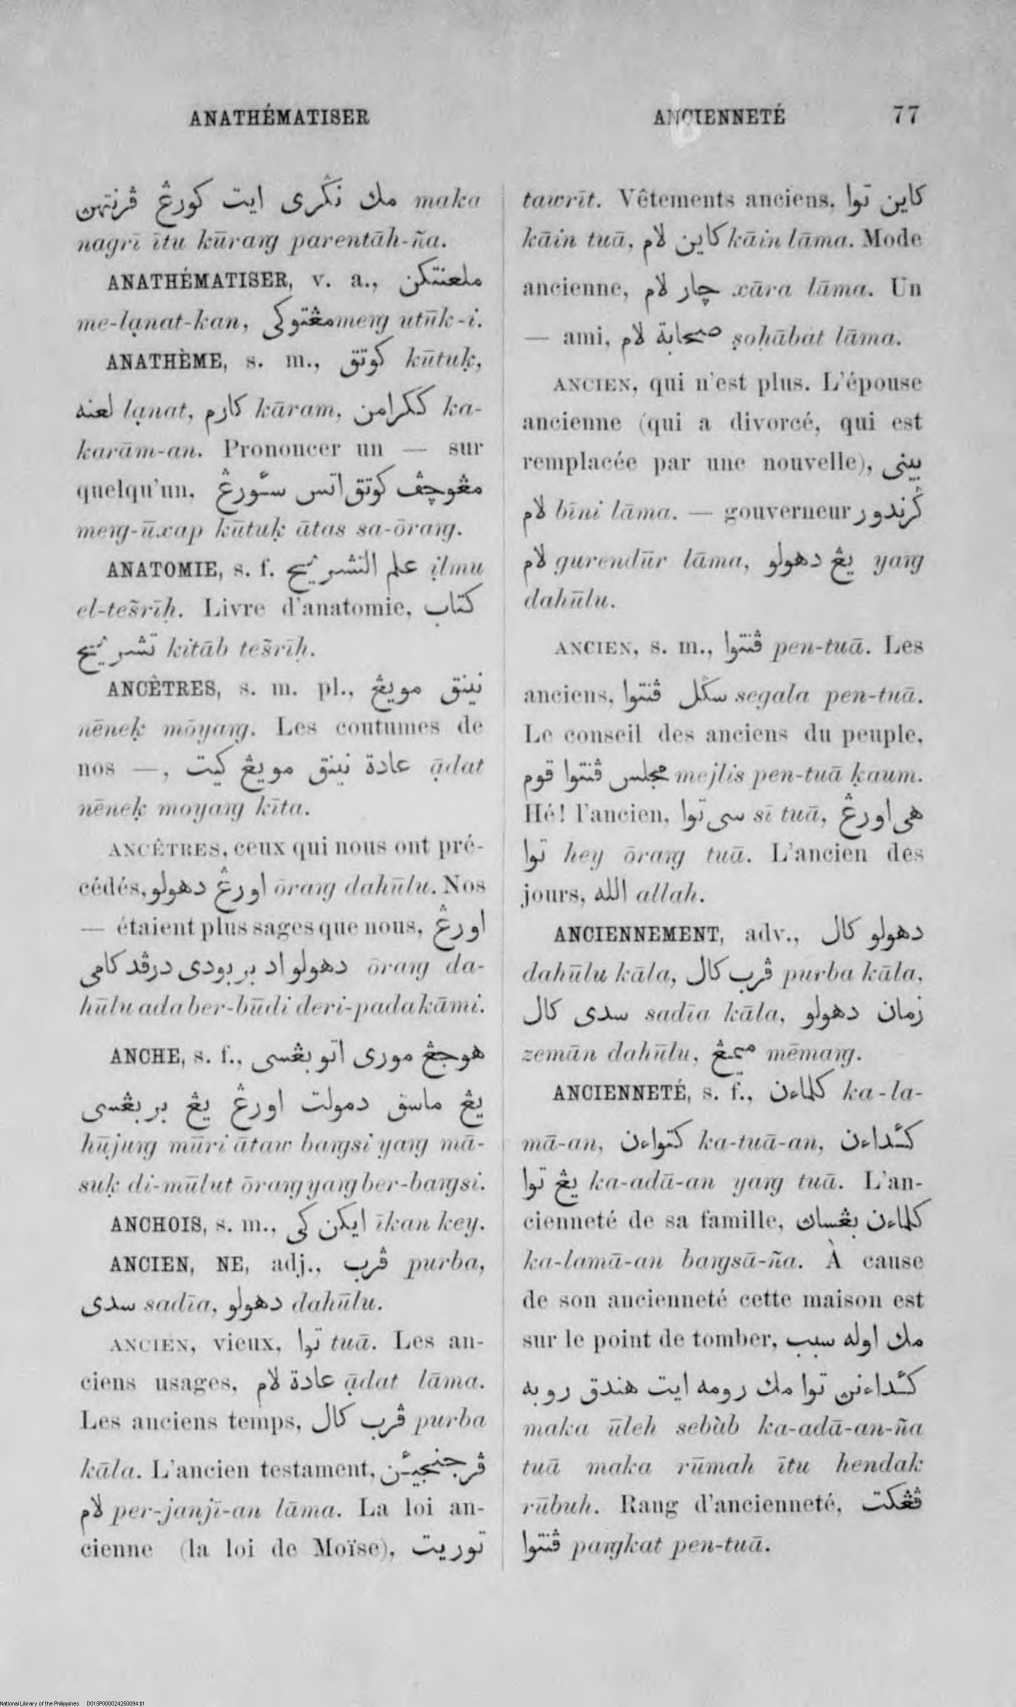 ANATHÉMATISER
ANCIENNETÉ 77
مك نݢري ايت كورڠ ڤرنتهن maka
nagrī ītu kūrarg parentāh-ña.
ANATHÉMATISER, v. a., ملعنتكن
me-lạnat-kan, مڠتوكي merg utūk-i.
ANATHÈME, s. m., كوتق kūtuḳ,
لعنه lạnat, كارم kāram, ككرامن ka-
karām-an. Prononcer un — sur
quelqu'un, مڠوچڤ كوتق اتس سئورڠ
merg-ūxap kūtuḳ ātas sa-ōrarg.
ANATOMIE, s. f. علم التشريح ịlmu
el-tešrīḥ. Livre d'anatomie, كتاب
تشريح kitāb tešrīḥ.
ANCÊTRES, s. m. pl., نينق مويڠ
nēneḳ mōyarg. Les coutumes de
nos —, عادة نينق مويڠ كيت ạ̄dat
nēneḳ moyarg kīta.
ANCÊTRES, ceux qui nous ont pré-
cédés, اورڠ دهولو ōrarg dahūlu. Nos
— étaient plus sages que nous, اورڠ
دهولو اد بربودي درڤد كامي ōrarg da-
hūlu ada ber-būdi deri-pada kāmi.
ANCHE, s. f., هوجڠ موري اتو بڠسي
يڠ ماسق دمولت اورڠ يڠ بربڠسي
hūjurg mūri ātaw bargsi yarg mā-
suḳ di-mūlut ōrarg yarg ber-bargsi.
ANCHOIS, s. m., ايكن كي īkan key.
ANCIEN, NE, adj., ڤرب purba,
سدي sadīa, دهولو dahūlu.
ANCIEN, vieux, توا tuā. Les an-
ciens usages, عادة لام ạ̄dat lāma.
Les anciens temps, ڤرب كال purba
kāla. L'ancien testament, ڤرجنجيئن
لام per-janjī-an lāma. La loi an-
cienne (la loi de Moïse), توريت
tawrīt. Vêtements anciens, كاين توا
kāin tuā, كاين لام kāin lāma. Mode
ancienne, چار لام xāra lāma. Un
— ami, صحابة لام ṣoḥābat lāma.
ANCIEN, qui n'est plus. L'épouse
ancienne (qui a divorcé, qui est
remplacée par une nouvelle), بيني
لام bīni lāma. — gouverneur ݢرندور
لام gurendūr lāma, يڠ دهولو yarg
dahūlu.
ANCIEN, s. m., ڤنتوا pen-tuā. Les
anciens, سݢل ڤنتوا segala pen-tuā.
Le conseil des anciens du peuple,
مجلس ڤنتوا قوم mejlis pen-tuā ḳaum.
Hé! l'ancien, سي توا sī tuā, هي اورڠ
توا hey ōrarg tuā. L'ancien des
jours, الله allah.
ANCIENNEMENT, adv., دهولو كال
dahūlu kāla, ڤرب كال purba kāla,
سدي كال sadīa kāla, زمان دهولو
zemān dahūlu, ميمڠ mēmarg.
ANCIENNETÉ, s. f., كلماءن ka-la-
mā-an, كتواءن ka-tuā-an, كئداءن
يڠ توا ka-adā-an yarg tuā. L'an-
cienneté de sa famille, كلماءن بڠساڽ
ka-lamā-an bargsā-ña. À cause
de son ancienneté cette maison est
sur le point de tomber, مك اوله سبب
كئداءنڽ توا مك رومه ايت هندق روبه
maka ūleh sebàb ka-adā-an-ña
tuā maka rūmah ītu hendak
rūbuh. Rang d'ancienneté, ڤڠكت
ڤنتوا pargkat pen-tuā.
National Library of the Philippines